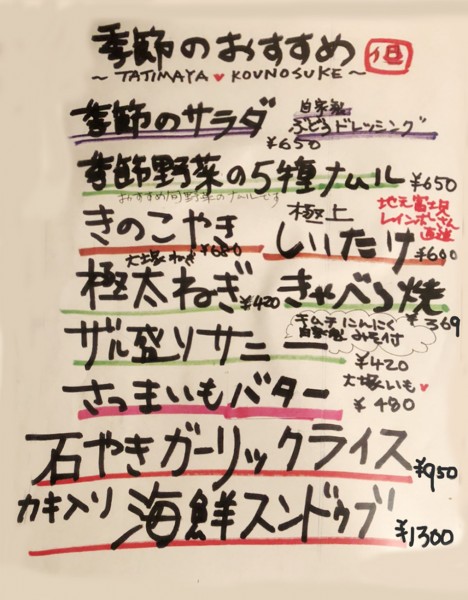 季節のおすすめ 但
～TATIMAYA♥KOUNOSUKE～
季節のサラダ 自家製
ぶどうドレッシング
¥650
季節野菜の5種ナムル ¥650
おすすめ旬野菜のナムルです
きのこやき ¥680
極上
しいたけ ¥600
地元富沢
レインボーさん
直送
大塚ねぎ
極太ねぎ ¥420
きゃべつ焼 ¥369
ザル盛りサニー
キムチにんにく
自家製みそ付
¥420
さつまいもバター
大塚いも♥
¥480
石やきガーリックライス ¥950
カキ入り 海鮮スンドゥブ ¥1300